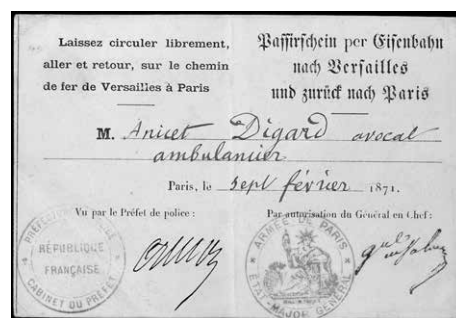 Laissez circuler librement,
aller et retour, sur le chemin
de fer de Versailles à Paris
Passirschein per Eisenbahn
nach Versailles
und zurück nach Paris
M. Anicet Digard avocat
ambulancier
Paris, le sept février 1871.
Vu par le Préfet de police :
Par autorisation du Général en Chef :
RÉPUBLIQUE
FRANÇAISE
CABINET DU PRÉFET
ARMÉE DE PARIS
ÉTAT-MAJOR GÉNÉRAL